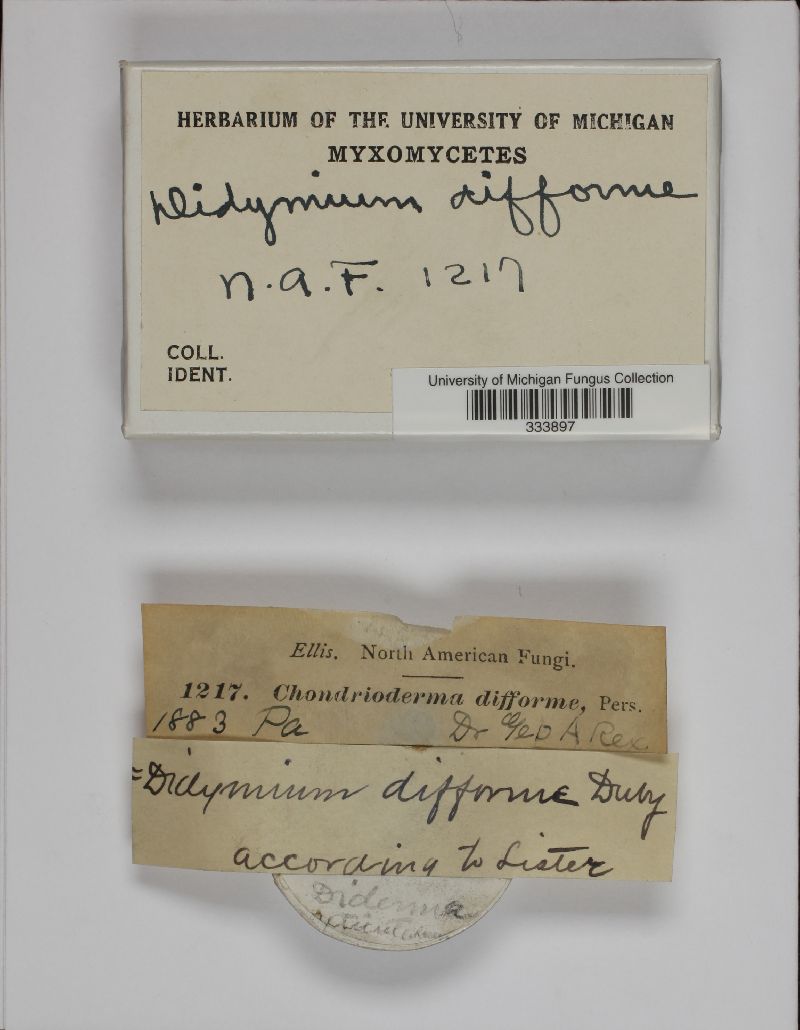 HERBARIUM OF THE UNIVERSITY OF MICHIGAN
MYXOMYCETES
Didymium difforme
N.A.F. 1217
COLL.
IDENT.
University of Michigan Fungus Collection
333897
Ellis. North American Fungi.
1217. Chondrioderma difforme, Pers.
1883 Pa Dr Geo A Rex
=Didymium difforme Duby
according to Lister
Diderma